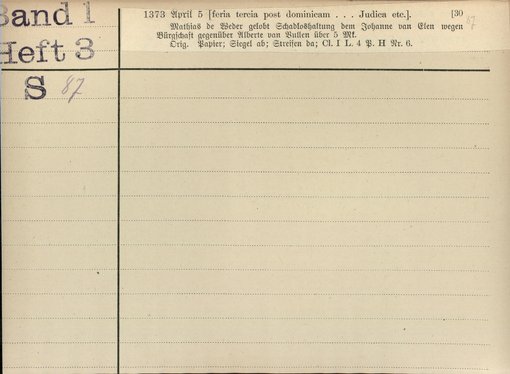 Band 1
Heft 3
S 87
1373 April 5 [feria tercia post dominicam . . . Judica etc.]. [30
Mathias de Weder gelobt Schadloshaltung dem Johanne van Elen wegen
Bürgschaft gegenüber Alberte van Bullen über 5 Mk.
Orig. Papier; Siegel ab; Streifen da; Cl. I L. 4 P. H Nr. 6.